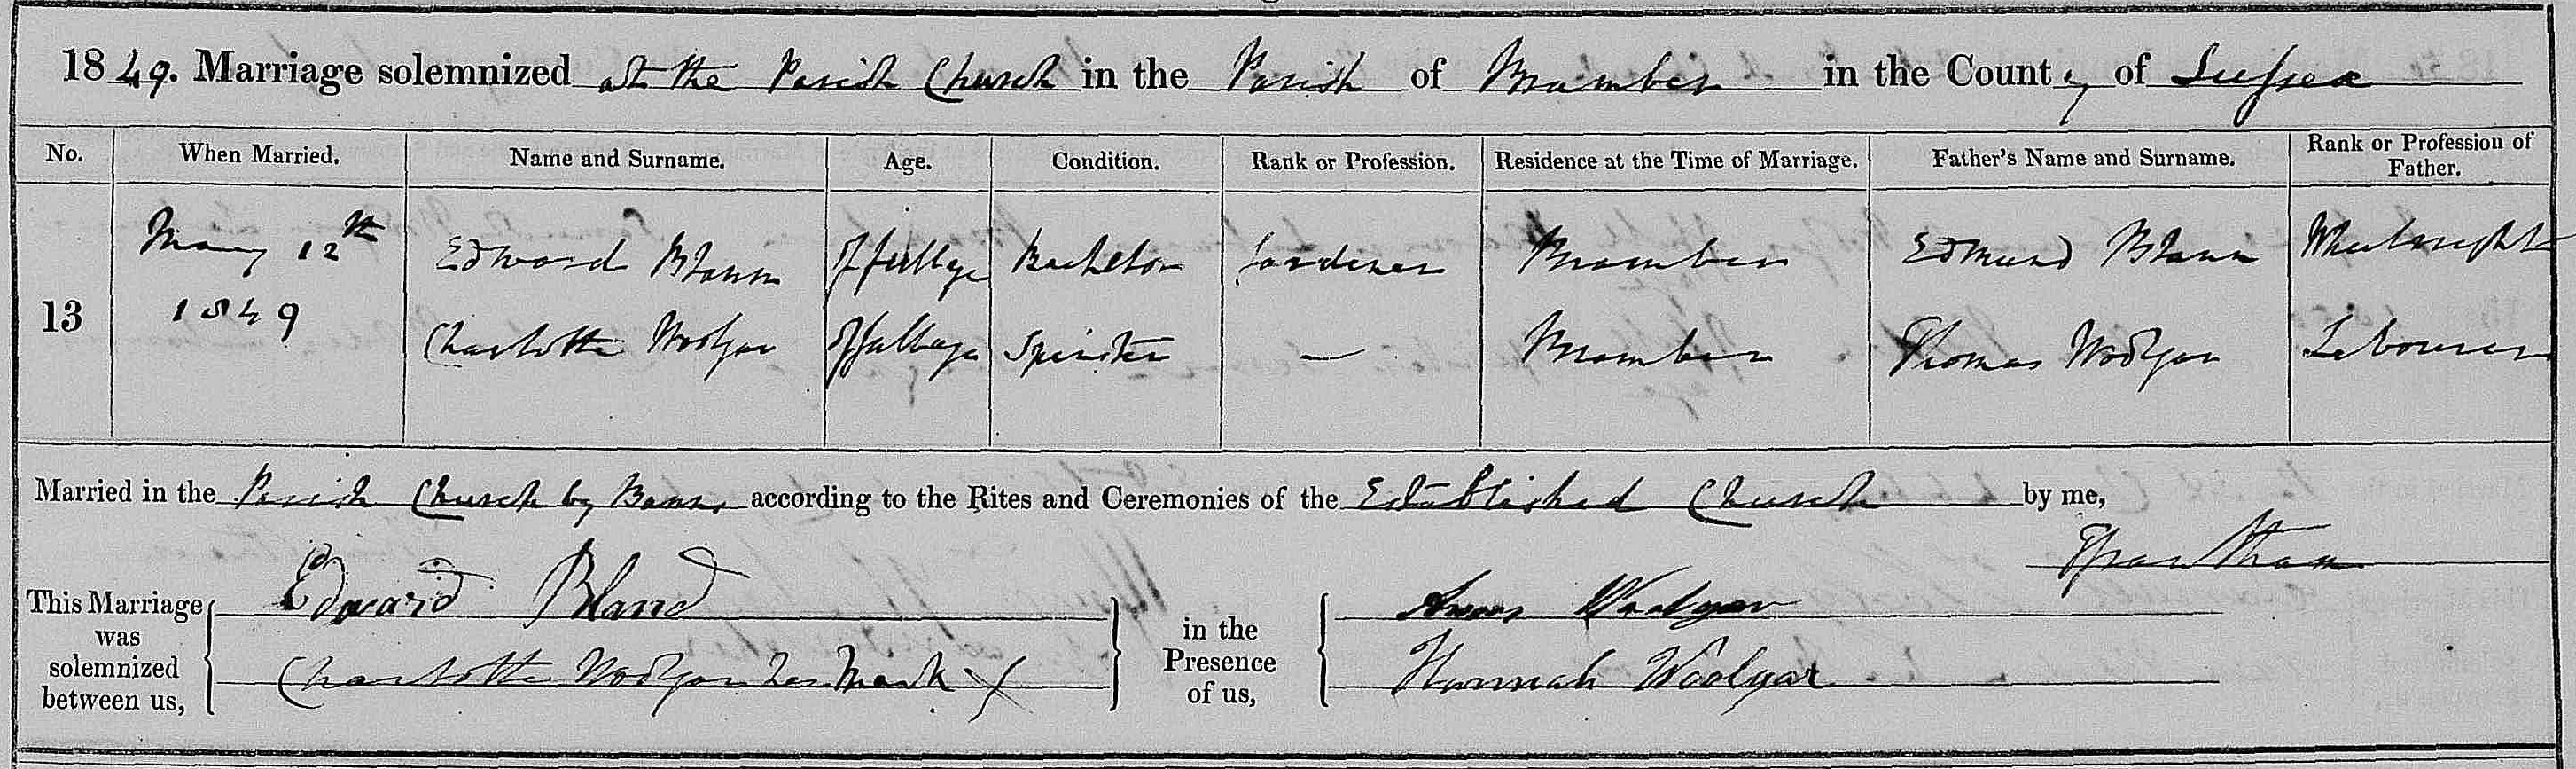 1849. Marriage solemnized at the Parish Church in the Parish of Bramber in the County of Sussex
No. When Married. Name and Surname. Age. Condition. Rank or Profession. Residence at the Time of Marriage. Father's Name and Surname. Rank or Profession of Father.
13
May 12th 1849
Edward Blann Of full age Bachelor Gardener Bramber Edmund Blann Wheelwright
Charlotte Woolgar Of full age Spinster — Bramber Thomas Woolgar Labourer
Married in the Parish Church by Banns according to the Rites and Ceremonies of the Established Church by me,
This Marriage was solemnized between us,
Edward Bland
Charlotte Woolgar her Mark X
in the Presence of us,
Woolgar
Hannah Woolgar